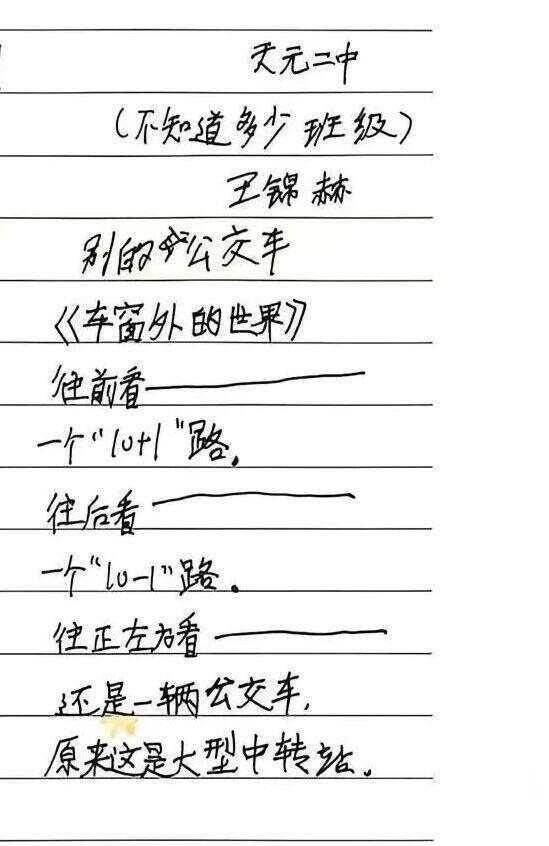 天元二中
（不知道多少班级）
王锦赫
别的公交车
《车窗外的世界》
往前看——
一个“10+1”路。
往后看——
一个“10-1”路.
往正左右看——
还是一辆公交车,
原来这是大型中转站.